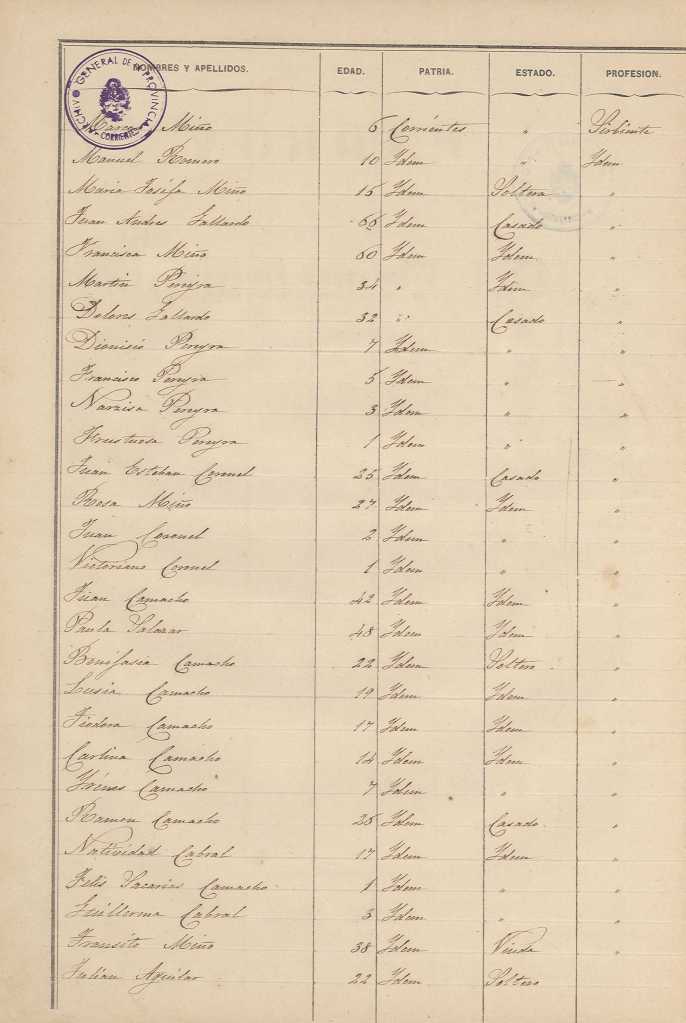 NOMBRES Y APELLIDOS. EDAD. PATRIA. ESTADO. PROFESION.
ARCHIVO GENERAL DE LA PROVINCIA
CORRIENTES
Miño 6 Corrientes " Sirbiente
Manuel Romero 10 Ydem " Ydem
Maria Joséfa Miño 15 Ydem Soltera "
Juan Andres Gallardo 66 Ydem Casado "
Francisca Miño 60 Ydem Ydem "
Martin Pereyra 34 " Ydem "
Dolores Gallardo 32 " Casado "
Dionisio Pereyra 7 Ydem " "
Francisco Pereyra 5 Ydem " "
Narsisa Pereyra 3 Ydem " "
Frustuosa Pereyra 1 Ydem " "
Juan Esteban Coronel 25 Ydem Casado "
Rosa Miño 27 Ydem Ydem "
Juan Coronel 2 Ydem " "
Victoriano Coronel 1 Ydem " "
Juan Camacho 42 Ydem Ydem "
Paula Salazar 48 Ydem Ydem "
Bonifasia Camacho 22 Ydem Soltero "
Lusia Camacho 19 Ydem Ydem "
Teodora Camacho 17 Ydem Ydem "
Carlina Camacho 14 Ydem Ydem "
Yrénes Camacho 7 Ydem " "
Ramon Camacho 26 Ydem Casado "
Natividad Cabral 17 Ydem Ydem "
Felis Sacarias Camacho 1 Ydem " "
Guillerma Cabral 3 Ydem " "
Transito Miño 38 Ydem Viuda "
Julián Aguilar 22 Ydem Soltero